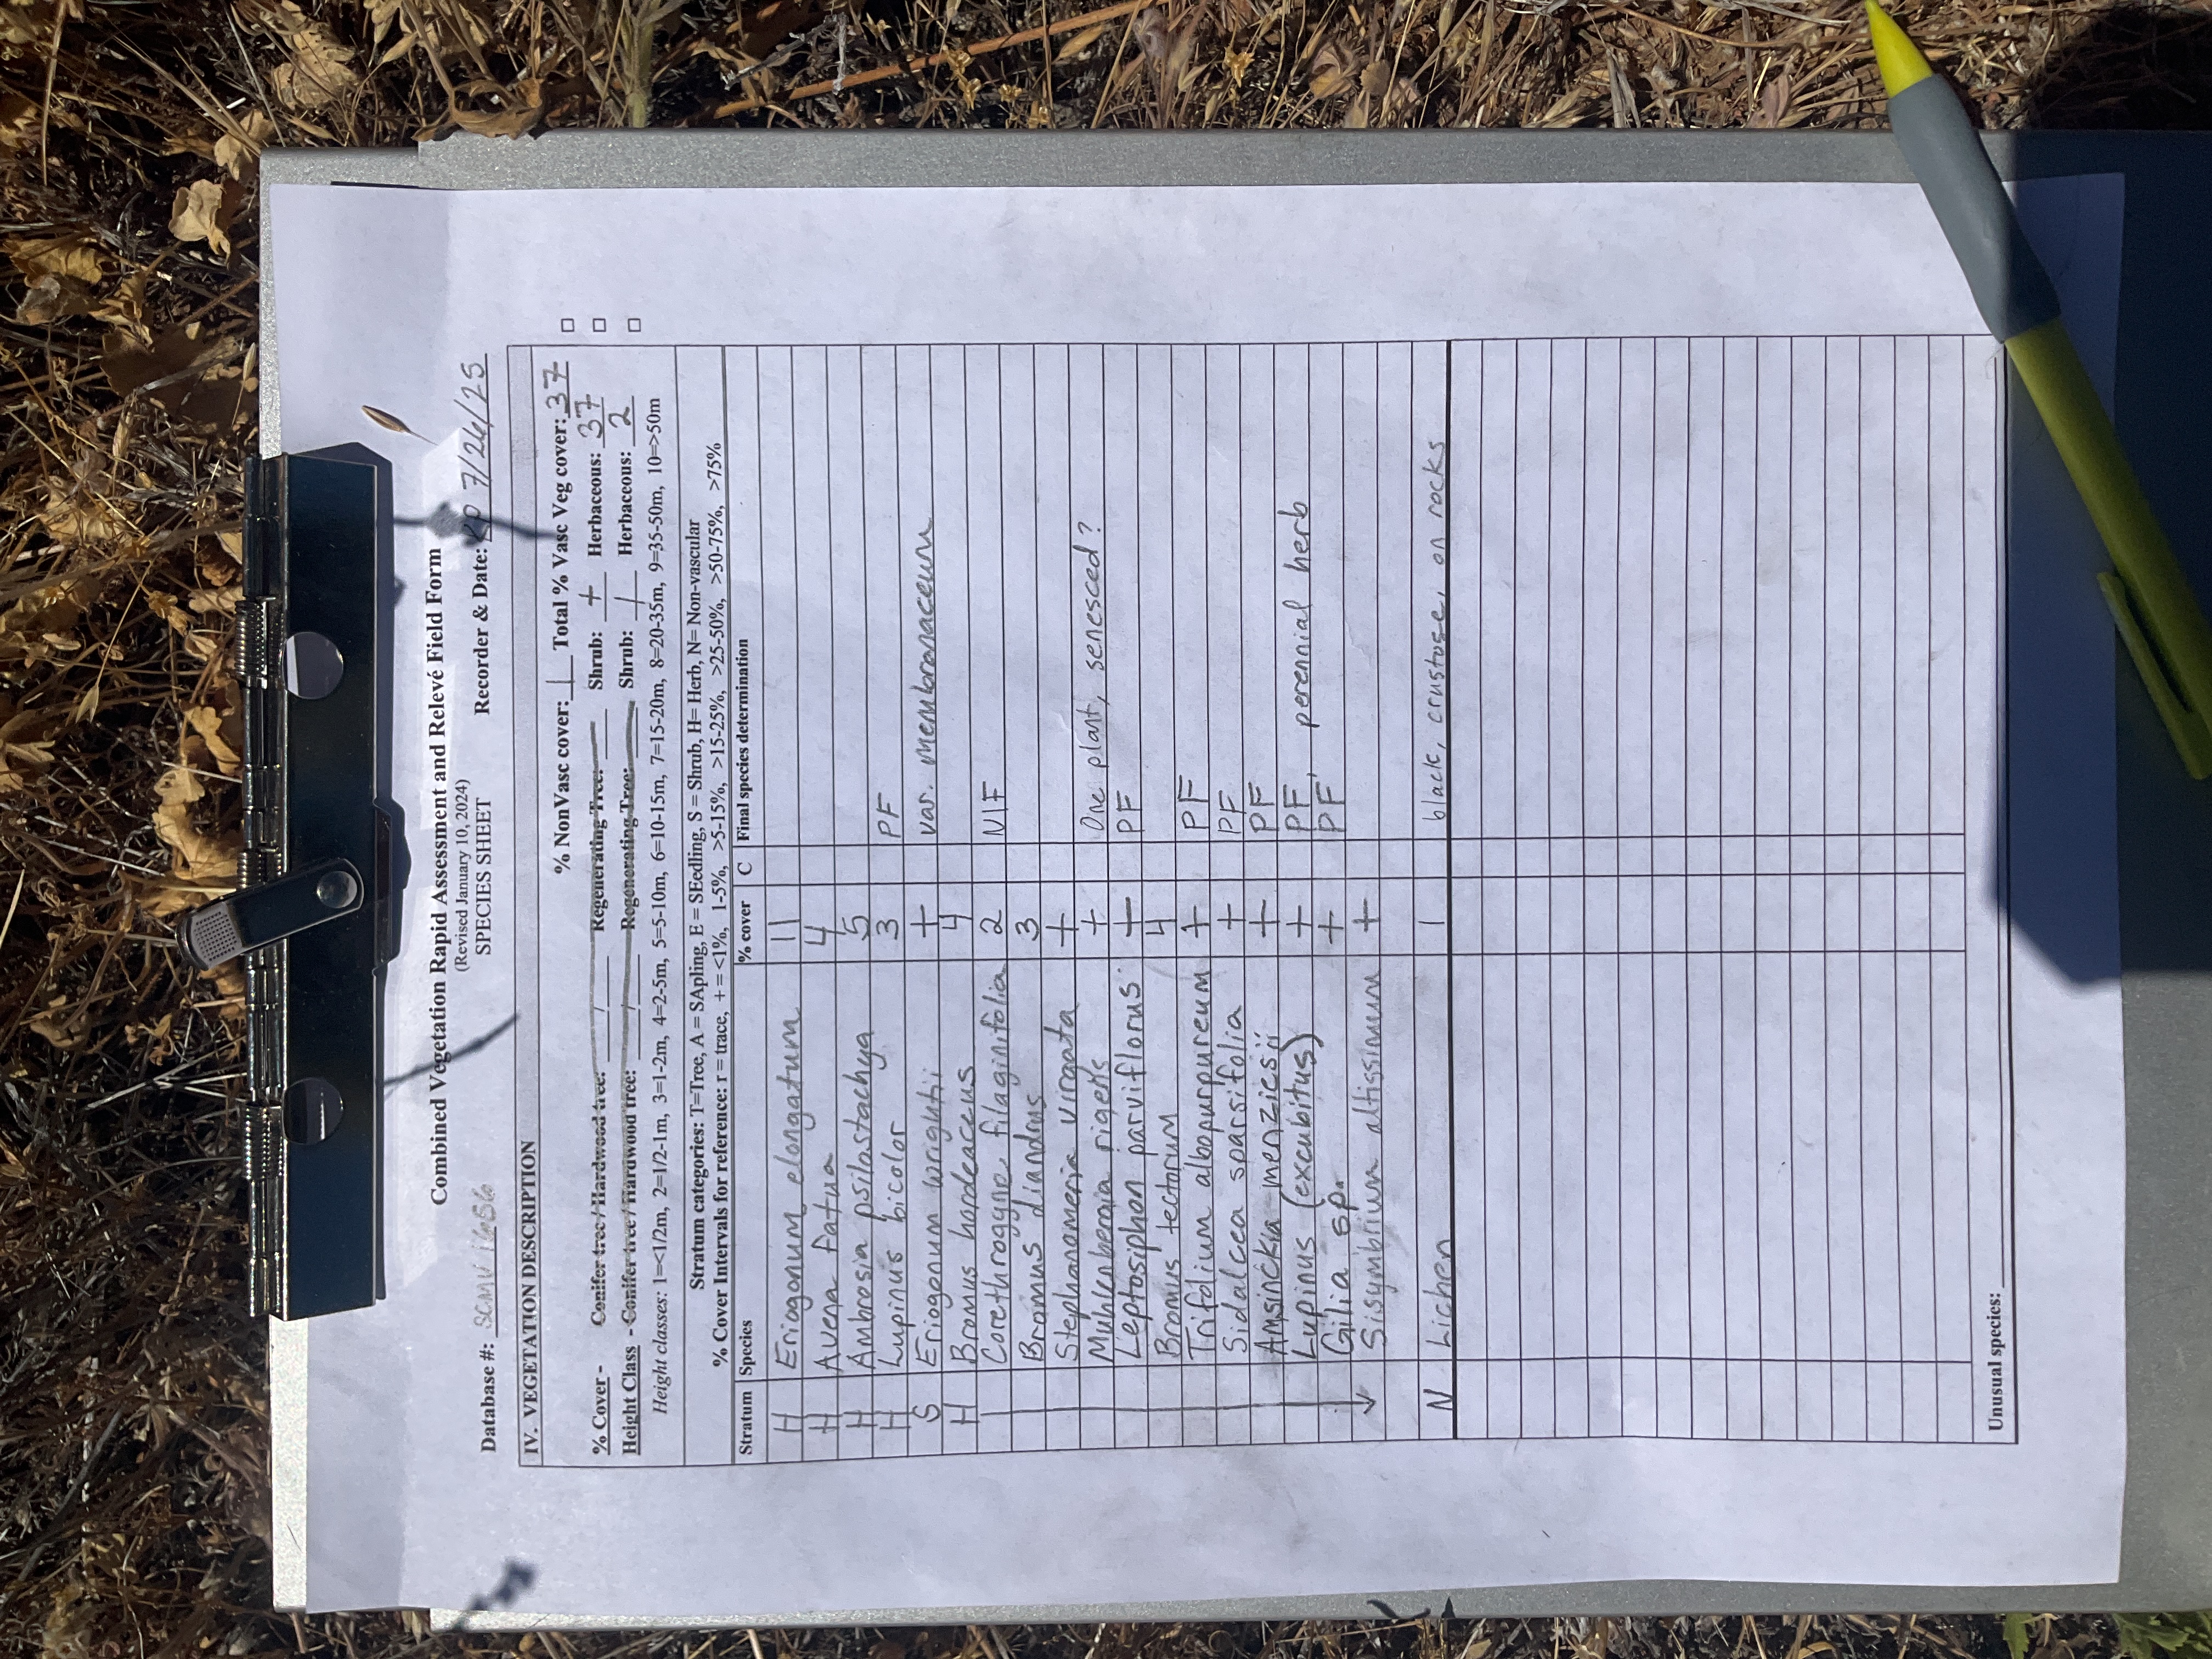 Combined Vegetation Rapid Assessment and Relevé Field Form
(Revised January 10, 2024)
Database #: SCMV1656 SPECIES SHEET Recorder & Date: KP 7/26/25
IV. VEGETATION DESCRIPTION
% NonVasc cover: 1 Total % Vasc Veg cover: 37
% Cover - Conifer tree / Hardwood tree: / Regenerating Tree: Shrub: + Herbaceous: 37
Height Class - Conifer tree / Hardwood tree: / Regenerating Tree: Shrub: 1 Herbaceous: 2
Height classes: 1=<1/2m, 2=1/2-1m, 3=1-2m, 4=2-5m, 5=5-10m, 6=10-15m, 7=15-20m, 8=20-35m, 9=35-50m, 10=>50m
Stratum categories: T=Tree, A = SApling, E = SEedling, S = Shrub, H= Herb, N= Non-vascular
% Cover Intervals for reference: r = trace, + = <1%, 1-5%, >5-15%, >15-25%, >25-50%, >50-75%, >75%
Stratum Species % cover C Final species determination
H Eriogonum elongatum 11
H Avena fatua 4
H Ambrosia psilostachya 5
H Lupinus bicolor 3 PF
S Eriogonum wrightii + var. membranaceum
H Bromus hordeaceus 4
Corethrogyne filaginifolia 2 NIF
Bromus diandrus 3
Stephanomeria virgata +
Muhlenbergia rigens + One plant, senesced?
Leptosiphon parviflorus + PF
Bromus tectorum 4
Trifolium albopurpureum + PF
Sidalcea sparsifolia + PF
Amsinckia menziesii + PF
Lupinus (excubitus) + PF, perennial herb
Gilia sp. + PF
Sisymbrium altissimum +
N Lichen 1 black, crustose, on rocks
Unusual species: